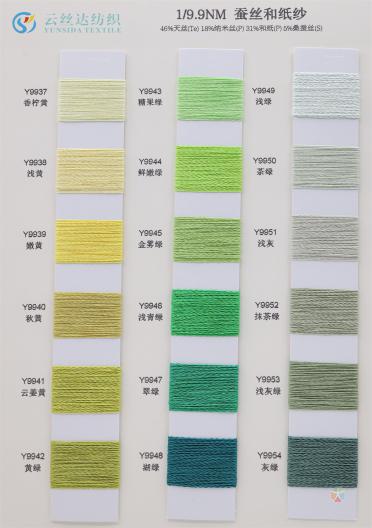 云丝达纺织
YUNSIDA TEXTILE
1/9.9NM 蚕丝和纸纱
46%天丝(Te) 18%纳米丝(P) 31%和纸(P) 5%桑蚕丝(S)
Y9937
香柠黄
Y9938
浅黄
Y9939
嫩黄
Y9940
秋黄
Y9941
云姜黄
Y9942
黄绿
Y9943
糖果绿
Y9944
鲜嫩绿
Y9945
金雾绿
Y9946
浅青绿
Y9947
翠绿
Y9948
湖绿
Y9949
浅绿
Y9950
茶绿
Y9951
浅灰
Y9952
抹茶绿
Y9953
浅灰绿
Y9954
灰绿